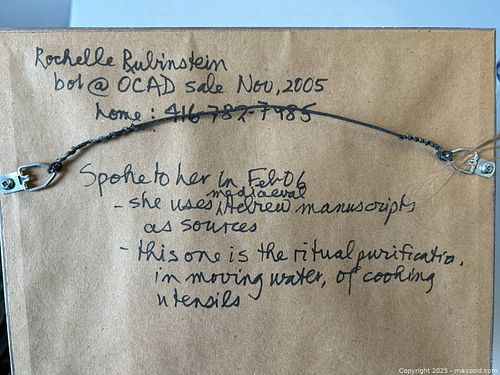 Rochelle Rubinstein
bot @ OCAD sale Nov, 2005
home: 416-782-7985
Spoke to her in Feb 06
- she uses mediaeval Hebrew manuscripts
as sources
- this one is the ritual purificatio.
in moving water, of cooking
utensils
Copyright 2025 - maxsold.com